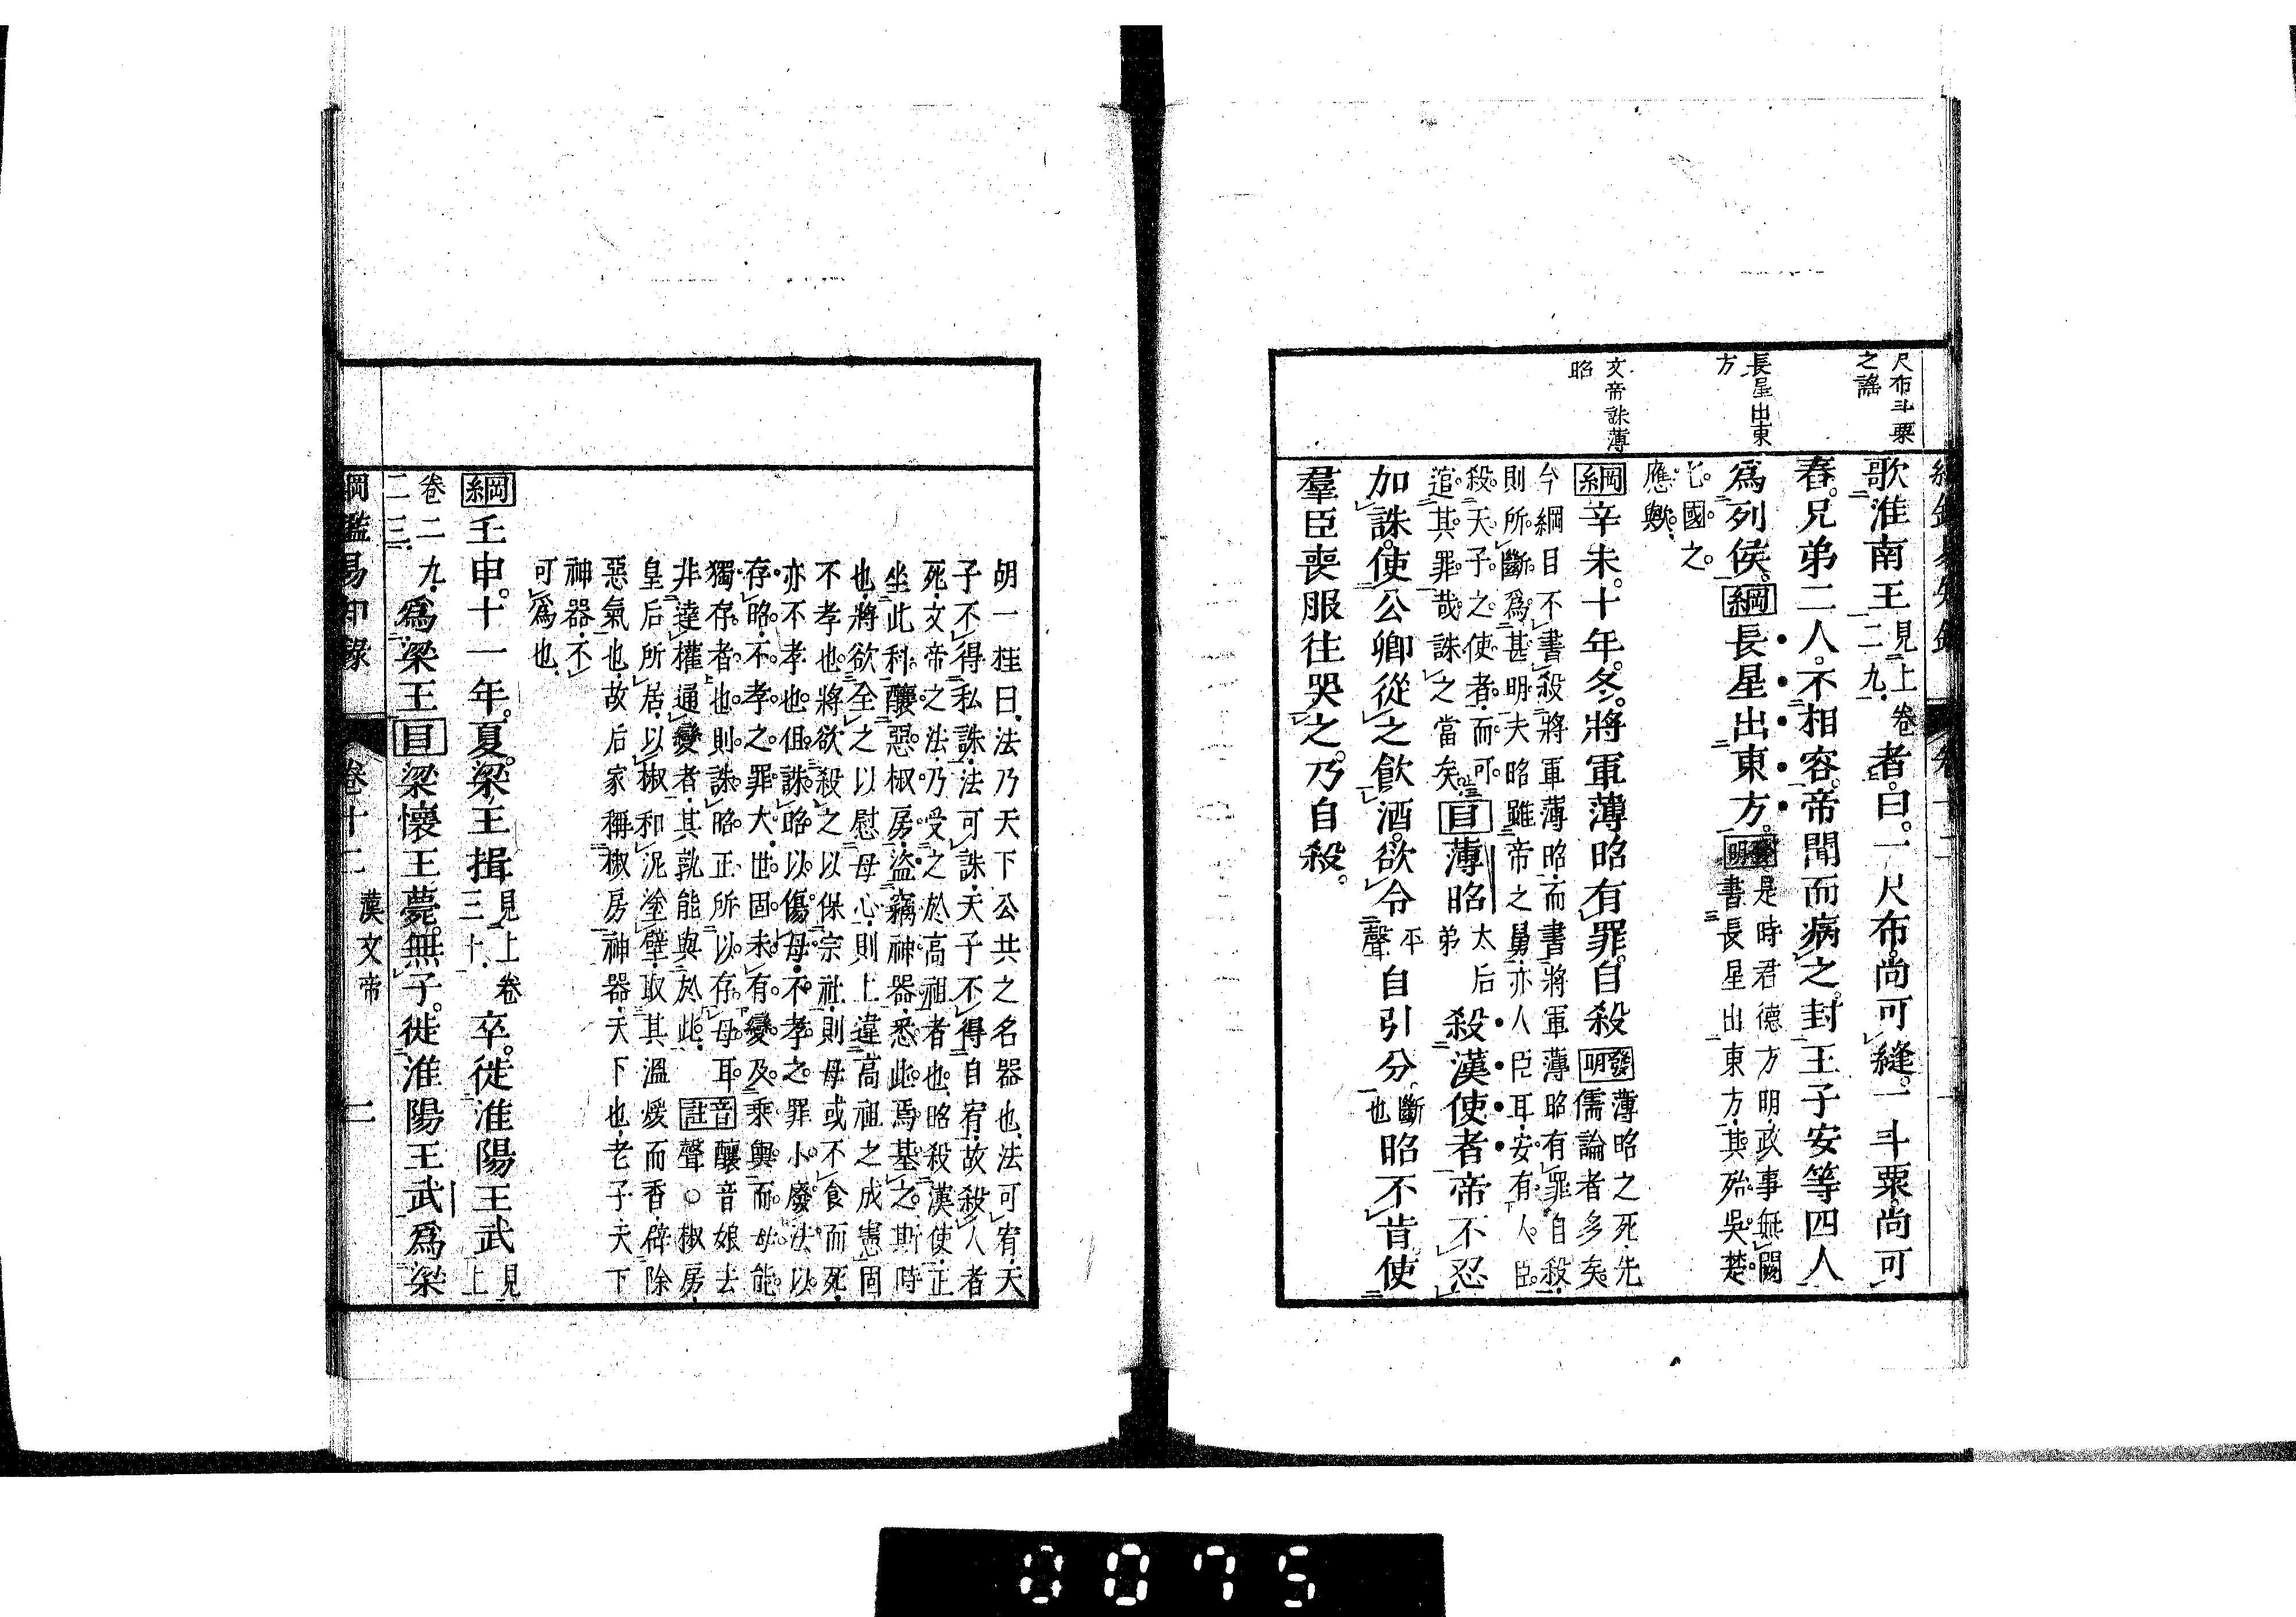 尺布斗粟
之謠
長星出東
方
文帝誅薄
昭
歌淮南王見上卷二九者曰一尺布尚可縫一斗粟尚可
舂兄弟二人不相容帝聞而病之封王子安等四人
爲列侯綱長星出東方發明是時君德方明政事無闕
書長星出東方其殆吳楚
七國之
應歟
綱辛未十年冬將軍薄昭有罪自殺發明薄昭之死先
儒論者多矣
今綱目不書殺將軍薄昭而書將軍薄昭有罪自殺
則所斷爲甚明夫昭雖帝之舅亦人臣耳安有人臣
殺天子之使者而可
追其罪哉誅之當矣目薄昭太后弟殺漢使者帝不忍
加誅使公卿從之飮酒欲令平聲自引分斷也昭不肯使
羣臣喪服往哭之乃自殺
胡一桂曰法乃天下公共之名器也法可宥天
子不得私誅法可誅天子不得自宥故殺人者
死文帝之法乃受之於高祖者也昭殺漢使正
坐此科釀惡椒房盜竊神器悉此焉基之斯時
也將欲全之以慰母心則上違高祖之成憲固
不孝也將欲殺之以保宗社則母或不食而死
亦不孝也但誅昭以傷母不孝之罪小廢法以
存昭不孝之罪大世固未有變及乘輿而母能
獨存者也則誅昭正所以存母耳音註釀音娘去
聲○椒房
非達權通變者其孰能與於此
皇后所居以椒和泥塗壁取其溫煖而香辟除
惡氣也故后家稱椒房神器天下也老子天下
神器不
可爲也
綱壬申十一年夏梁王揖見上卷三十卒徙淮陽王武見上
卷二九二三爲梁王目梁懷王薨無子徙淮陽王武爲梁
綱鑑易知錄 卷十二 漢文帝 二